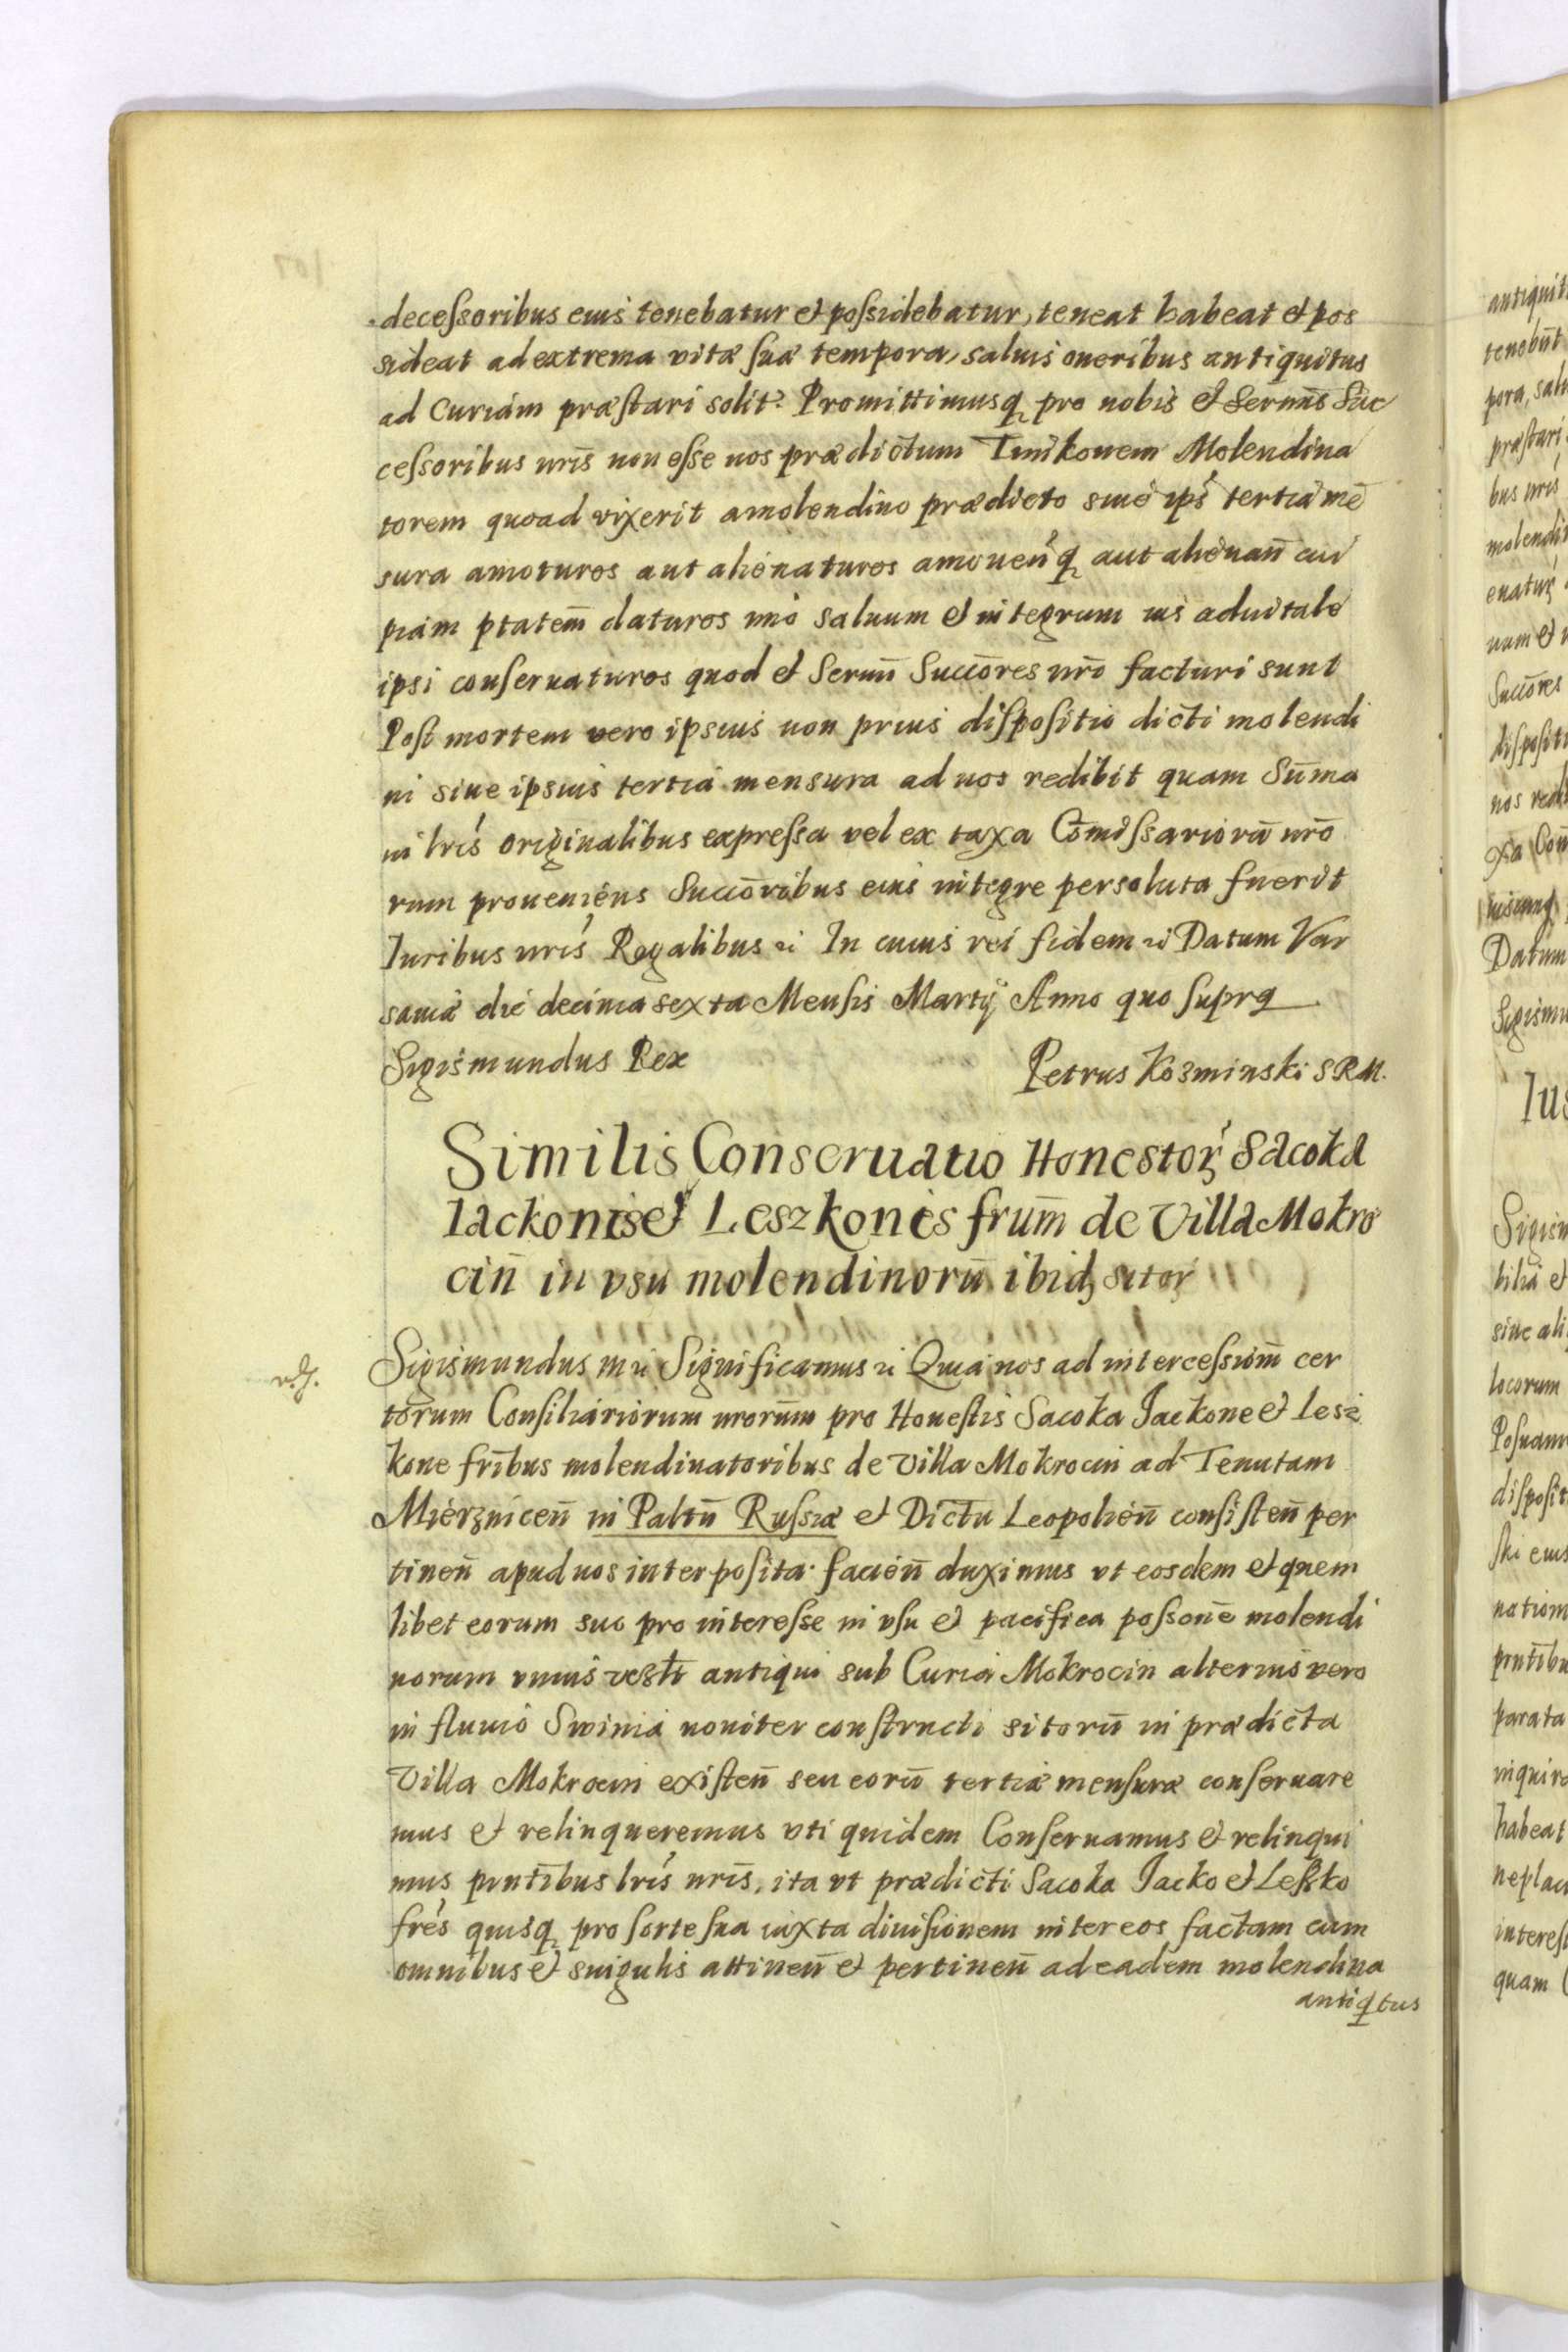 decessoribus eius tenebatur et possidebatur, teneat habeat et pos
sideat ad extrema vitæ suæ tempora, saluis oneribus antiquitus
ad Curiam præstari solit. Promittimusq pro nobis et Sermis Suc
cessoribus nris non esse nos prædictum Timkonem Molendina
torem quoad vixerit a molendino prædicto siue ips tertia mē
sura amoturos aut alienaturos amouenq aut alienan̄ cui
piam ptatem̄ daturos imo saluum et integrum ius aduitale
ipsi conseruaturos quod et Serm̄ Succōres nrō facturi sunt
Post mortem vero ipsius non prius dispositio dicti molendi
ni siue ipsius tertia mensura ad nos redibit quam Sūma
in lris originalibus expressa vel ex taxa Cōmissariorū nrō
rum proueniens Succōribus eius integre persoluta fuerit
Iuribus nris Regalibus ꝛc In cuius rei fidem ꝛc Datum Var
sauiæ die decima sexta Mensis Martÿ Anno quo supra
Sigismundus Rex Petrus Kozminski SRM.
Similis Conseruatio Honestoꝝ Sacoka
Iackonis et Leszkonis frum̄ de Villa Mokro
cin̄ in vsu molendinorū ibidꝫ sitoꝝ
Sigismundus m ꝛc Significamus ꝛc Quia nos ad intercessiom̄ cer
torum Consiliariorum nrorum̄ pro Honestis Sacoka Jackone et Lesz
kone fribus molendinatoribus de Villa Mokrocin ad Tenutam
Mierznicen̄ in Paltn̄ Russiæ et Dictu Leopolien̄ consisten̄ per
tinen̄ apud nos interposita. facien̄ duximus vt eosdem et quem
libet eorum suo pro interesse in vsu et pacifica possonē molendi
norum vnius antiqui sub Curia Mokrocin alterius vero
in fluuio Swinia nouiter constructi sitorū in prædicta
Villa Mokrocin existen̄ seu eorū tertiæ mensuræ conseruare
mus et relinqueremus vti quidem Conseruamus et relinqui
mus pntibus lris nris, ita vt prædicti Sacoka Jacko et Lesko
fres quisq pro sorte sua iuxta diuisionem inter eos factam cum
omnibus et singulis attinen̄ et pertinen̄ ad eadem molendina
antiqtus